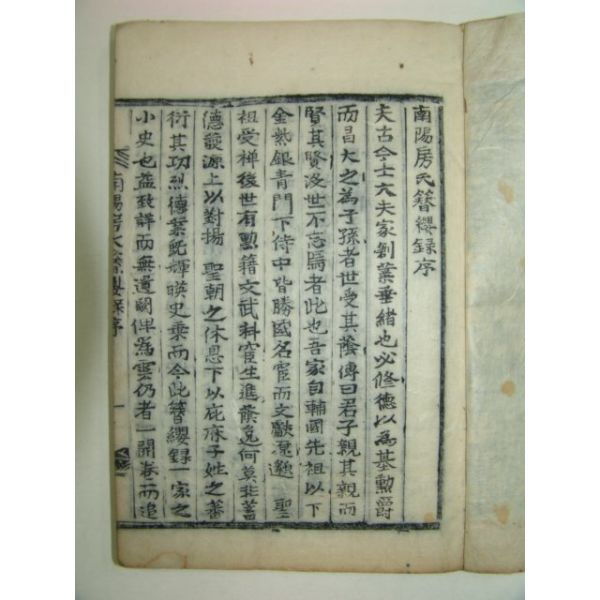 南陽房氏簪纓錄序
夫古今士大夫家刱業垂緖也必修德以為基勳爵
而昌大之為子孫者世受其蔭傳曰君子親其親而
賢其賢沒世不忘焉者此也吾家自輔國先祖以下
金紫銀青門下侍中皆勝國名宦而文獻邈 聖
祖受禅後世有勳籍文武科宦生進蔭逸何莫非蓄
德發源上以對揚 聖朝之休恩下以庇庥子姓之蕃
衍其功烈德業旣輝暎史乘而今此簪纓錄一家之
小史也益致詳而無遺闕俾為雲仍者一開卷而追
南陽房氏簪纓錄序 一